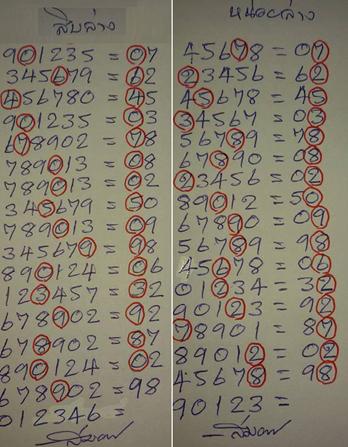 สิบล่าง
901235 = 07
345679 = 62
456780 = 45
901235 = 03
678902 = 78
789013 = 08
789013 = 02
345679 = 50
789013 = 09
345679 = 98
890124 = 06
123457 = 32
678902 = 92
678902 = 87
890124 = 02
678902 = 98
012346 =
หน่วยล่าง
45678 = 07
23456 = 62
45678 = 45
34567 = 03
56789 = 78
67890 = 08
23456 = 02
89012 = 50
67890 = 09
56789 = 98
45678 = 06
01234 = 32
90123 = 92
78901 = 87
89012 = 02
45678 = 98
90123 =